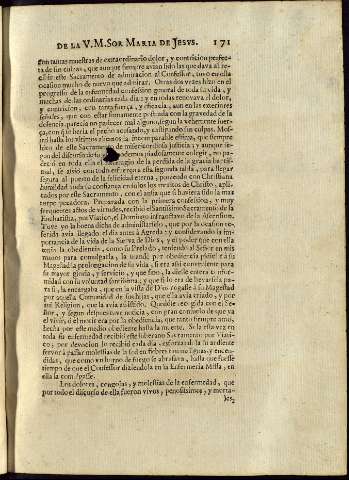 DE LA V. M. SOR MARIA DE JESVS. 171
con tantas muestras de extraordinario dolor, y contricion perfec-
ta de sus culpas, que aunque siempre avian sido las que dava al re-
cibir este Sacramento de admiracion al Confessor, tuvo en esta
ocasion mucho de nuevo que admirar. Otras dos vezes hizo en el
progresso de la enfermedad confession general de toda su vida, y
muchas de las ordinarias cada dia; y en todas renovava el dolor,
y contricion con tanta fuerça, y eficacia, aun en las exteriores
señales, que con estar sumamente postrada con la gravedad de la
dolencia, parecia no padecer mal alguno, segun la vehemente fuer-
ça, con que heria el pecho acusando, y castigando sus culpas. Mos-
trò hasta los ultimos alientos la incomparable estima, que siempre
hizo de este Sacramento de misericordiosa justicia; y aunque se-
gun el discurso de su podemos piadosamente colegir, no pa-
deció en toda ella el naufragio de la perdida de la gracia bautis-
mal, se asió con todo esfuerço a esta segunda tabla, para llegar
segura al puerto de la felicidad eterna, poniendo con Christiana
humildad toda su confiança en solos los meritos de Christo, apli-
cados por este Sacramento, con el ansia que si huviera sido la ma-
yor pecadora. Preparada con la primera confession, y muy
frequentes actos de virtudes, recibiò el Santissimo Sacramento de la
Eucharistia, por Viatico, el Domingo infraoctavo de la Ascension.
Tuve yo la buena dicha de administrarselo, que por la ocasion re-
ferida avia llegado el dia antes à Agreda; y considerando la im-
portancia de la vida de la Sierva de Dios, y el poder que con èl
tenia la obediencia, como su Prelado, teniendo al Señor en mis
manos para comulgarla, la mandè por obediencia pidiesse à su
Magestad la prolongacion de su vida, si era assi conveniente para
su mayor gloria, y servicio, y que sino, la diesse entera confor-
midad con su voluntad santissima; y que si lo era de llevarsela pa-
ra si, la encargava, que en la vista de Dios rogasse à su Magestad
por aquella Comunidad de sus hijas, que ella avia criado, y por
mi Religion, que la avia assistido. Quedòse recogida con el Se-
ñor, y segun despues tuve noticia, con gran consuelo de que ya
el vivir, ò el morir era por la obediencia, que tanto siempre amò,
hecha por este medio obediente hasta la muerte. Sola esta vez en
toda su enfermedad recibiò este soberano Sacramento por Viati-
co, por devocion lo recibiò cada dia, esforçandola su ardiente
fervor à passar molestias de la sed en fiebres tan malignas, y encen-
didas, que como en horno de fuego se abrasava, hasta que fuesse
tiempo de que el Confessor diziendola en la Enfermeria Missa, en
ella la comulgasse.
Los dolores, congojas, y molestias de la enfermedad, que
por todo el discurso de ella fueron vivos, penosissimos, y morta-
les,